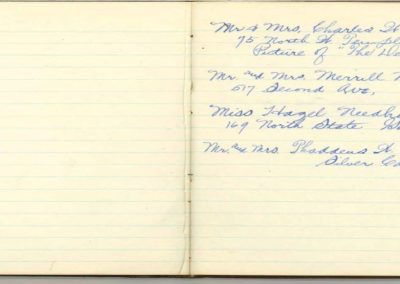 Mr & Mrs. Charles W
75 North St.
Picture of "The We
Mr. and Mrs. Merrill
517 Second Ave,
Miss Hazel Needh
169 North State
Mr. and Mrs. Thaddeus W
Silver C